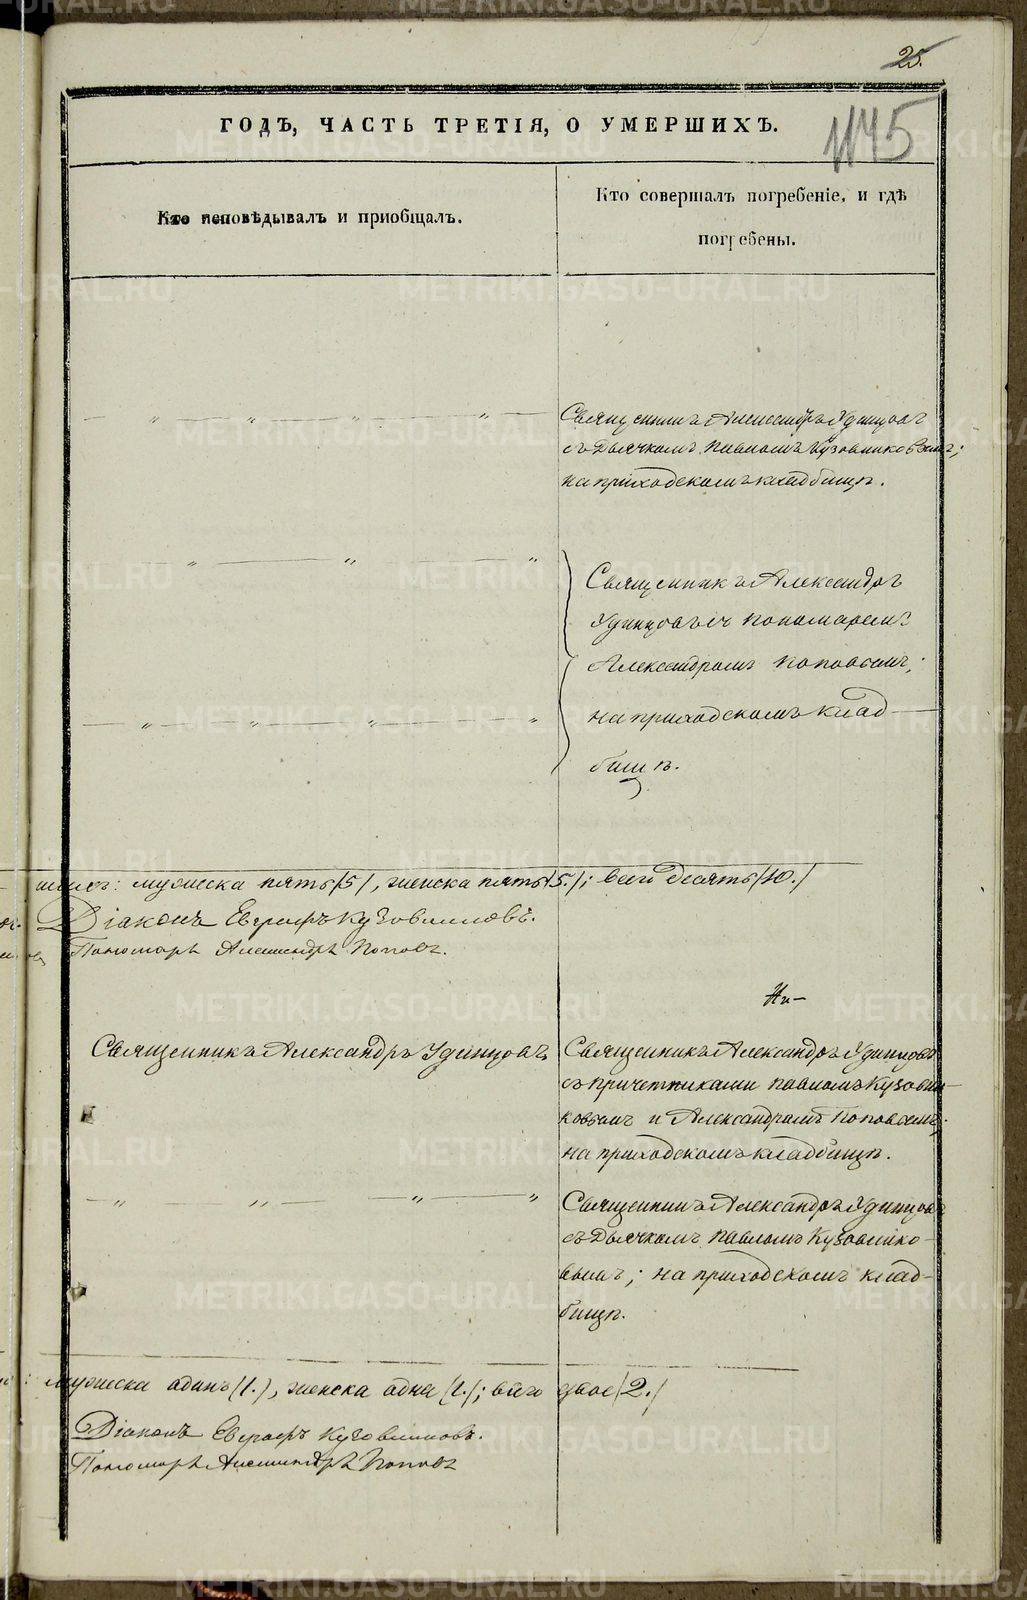 25.
1145
ГОДЪ, ЧАСТЬ ТРЕТІЯ, О УМЕРШИХЪ.
Кто исповѣдывалъ и пріобщалъ.
Кто совершалъ погребеніе, и гдѣ
погребены.
Священникъ Александръ Удинцовъ
съ Дьячкомъ Павломъ Кузовниковымъ;
на приходскомъ кладбищѣ.
Священникъ Александръ
Удинцовъ съ пономаремъ
Александромъ Поповымъ;
на приходскомъ клад-
бищѣ.
мужеска пять (5), женска пять (5.); всего десять (10.)
Діаконъ Евграфъ Кузовниковъ.
Пономарь Александръ Поповъ.
Священникъ Александръ Удинцовъ
Священникъ Александръ Удинцовъ
съ причетниками Павломъ Кузовни-
ковымъ и Александромъ Поповымъ;
на приходскомъ кладбищѣ.
Священникъ Александръ Удинцовъ
съ Дьячкомъ Павломъ Кузовнико-
вымъ; на приходскомъ клад-
бищѣ.
мужеска одинъ (1.), женска одна (1.); всего двое (2.)
Діаконъ Евграфъ Кузовниковъ.
Пономарь Александръ Поповъ
METRIKI.GASO-URAL.RU